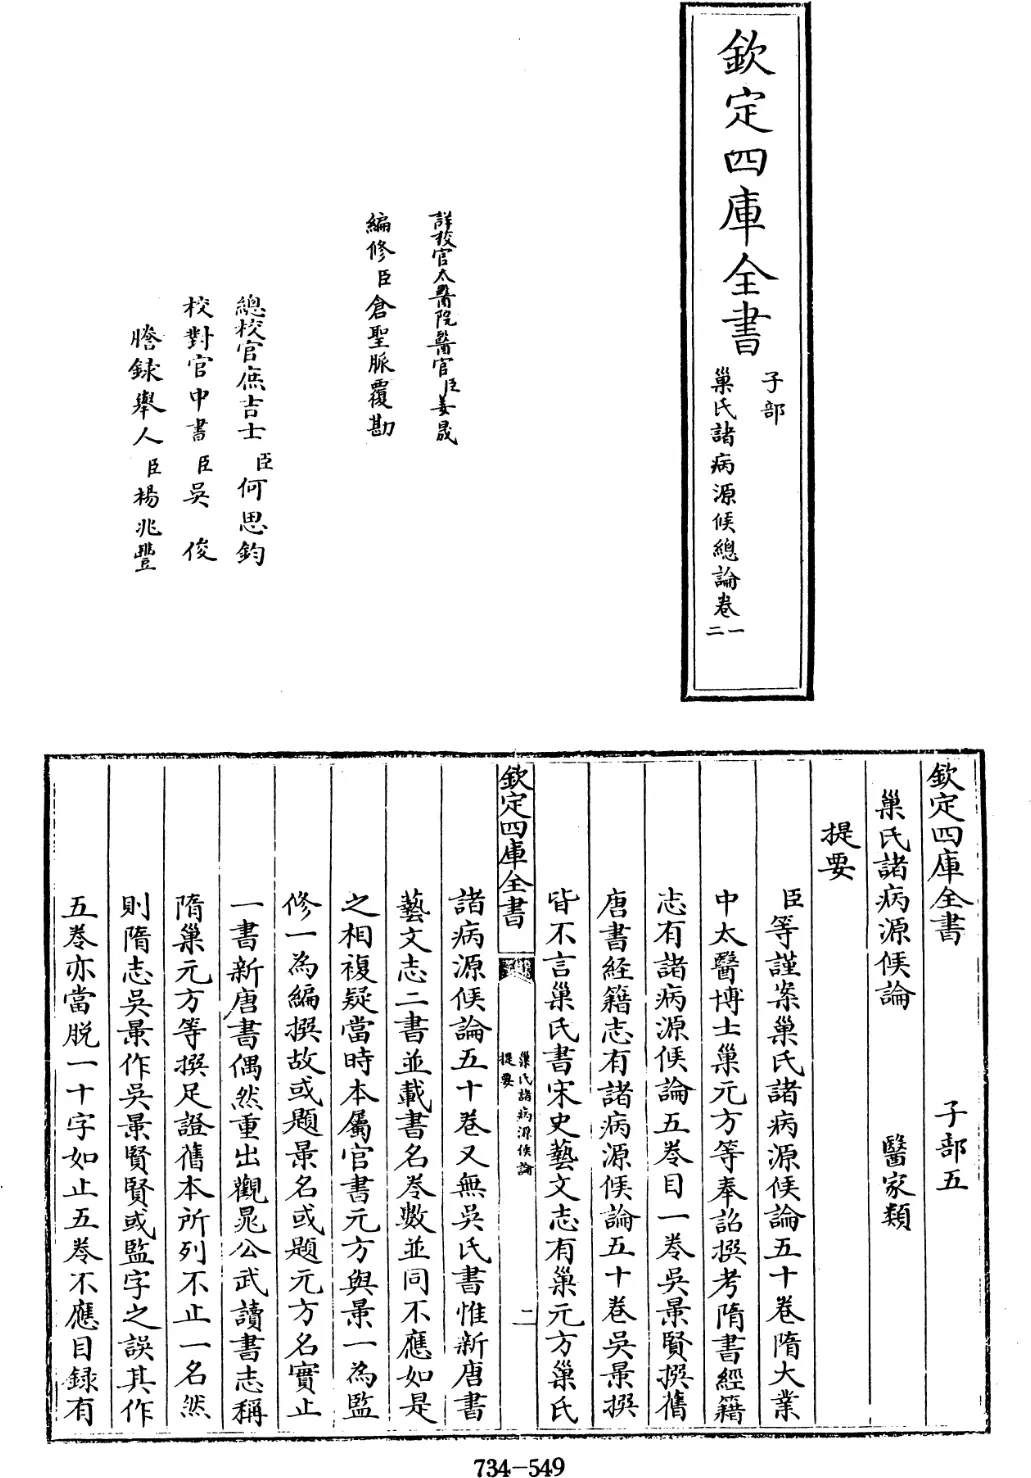 欽定四庫全書
子部
巢氏諸病源候總論卷一
二
詳校官太醫院醫官臣姜晟
編修臣倉聖脈覆勘
總校官庶吉士臣何思鈞
校對官中書臣吳俊
謄錄舉人臣楊兆豐
欽定四庫全書 子部五
巢氏諸病源候論 醫家類
提要
臣等謹案巢氏諸病源候論五十卷隋大業
中太醫博士巢元方等奉詔撰考隋書經籍
志有諸病源候論五卷目一卷吳景賢撰舊
唐書經籍志有諸病源候論五十卷吳景撰
皆不言巢氏書宋史藝文志有巢元方巢氏
欽定四庫全書
巢氏諸病源候論
提要
二
諸病源候論五十卷又無吳氏書惟新唐書
藝文志二書並載書名卷數並同不應如是
之相複疑當時本屬官書元方與景一為監
修一為編撰故或題景名或題元方名實止
一書新唐書偶然重出觀晁公武讀書志稱
隋巢元方等撰足證舊本所列不止一名然
則隋志吳景作吳景賢賢或監字之誤其作
五卷亦當脱一十字如止五卷不應目録有
734-549